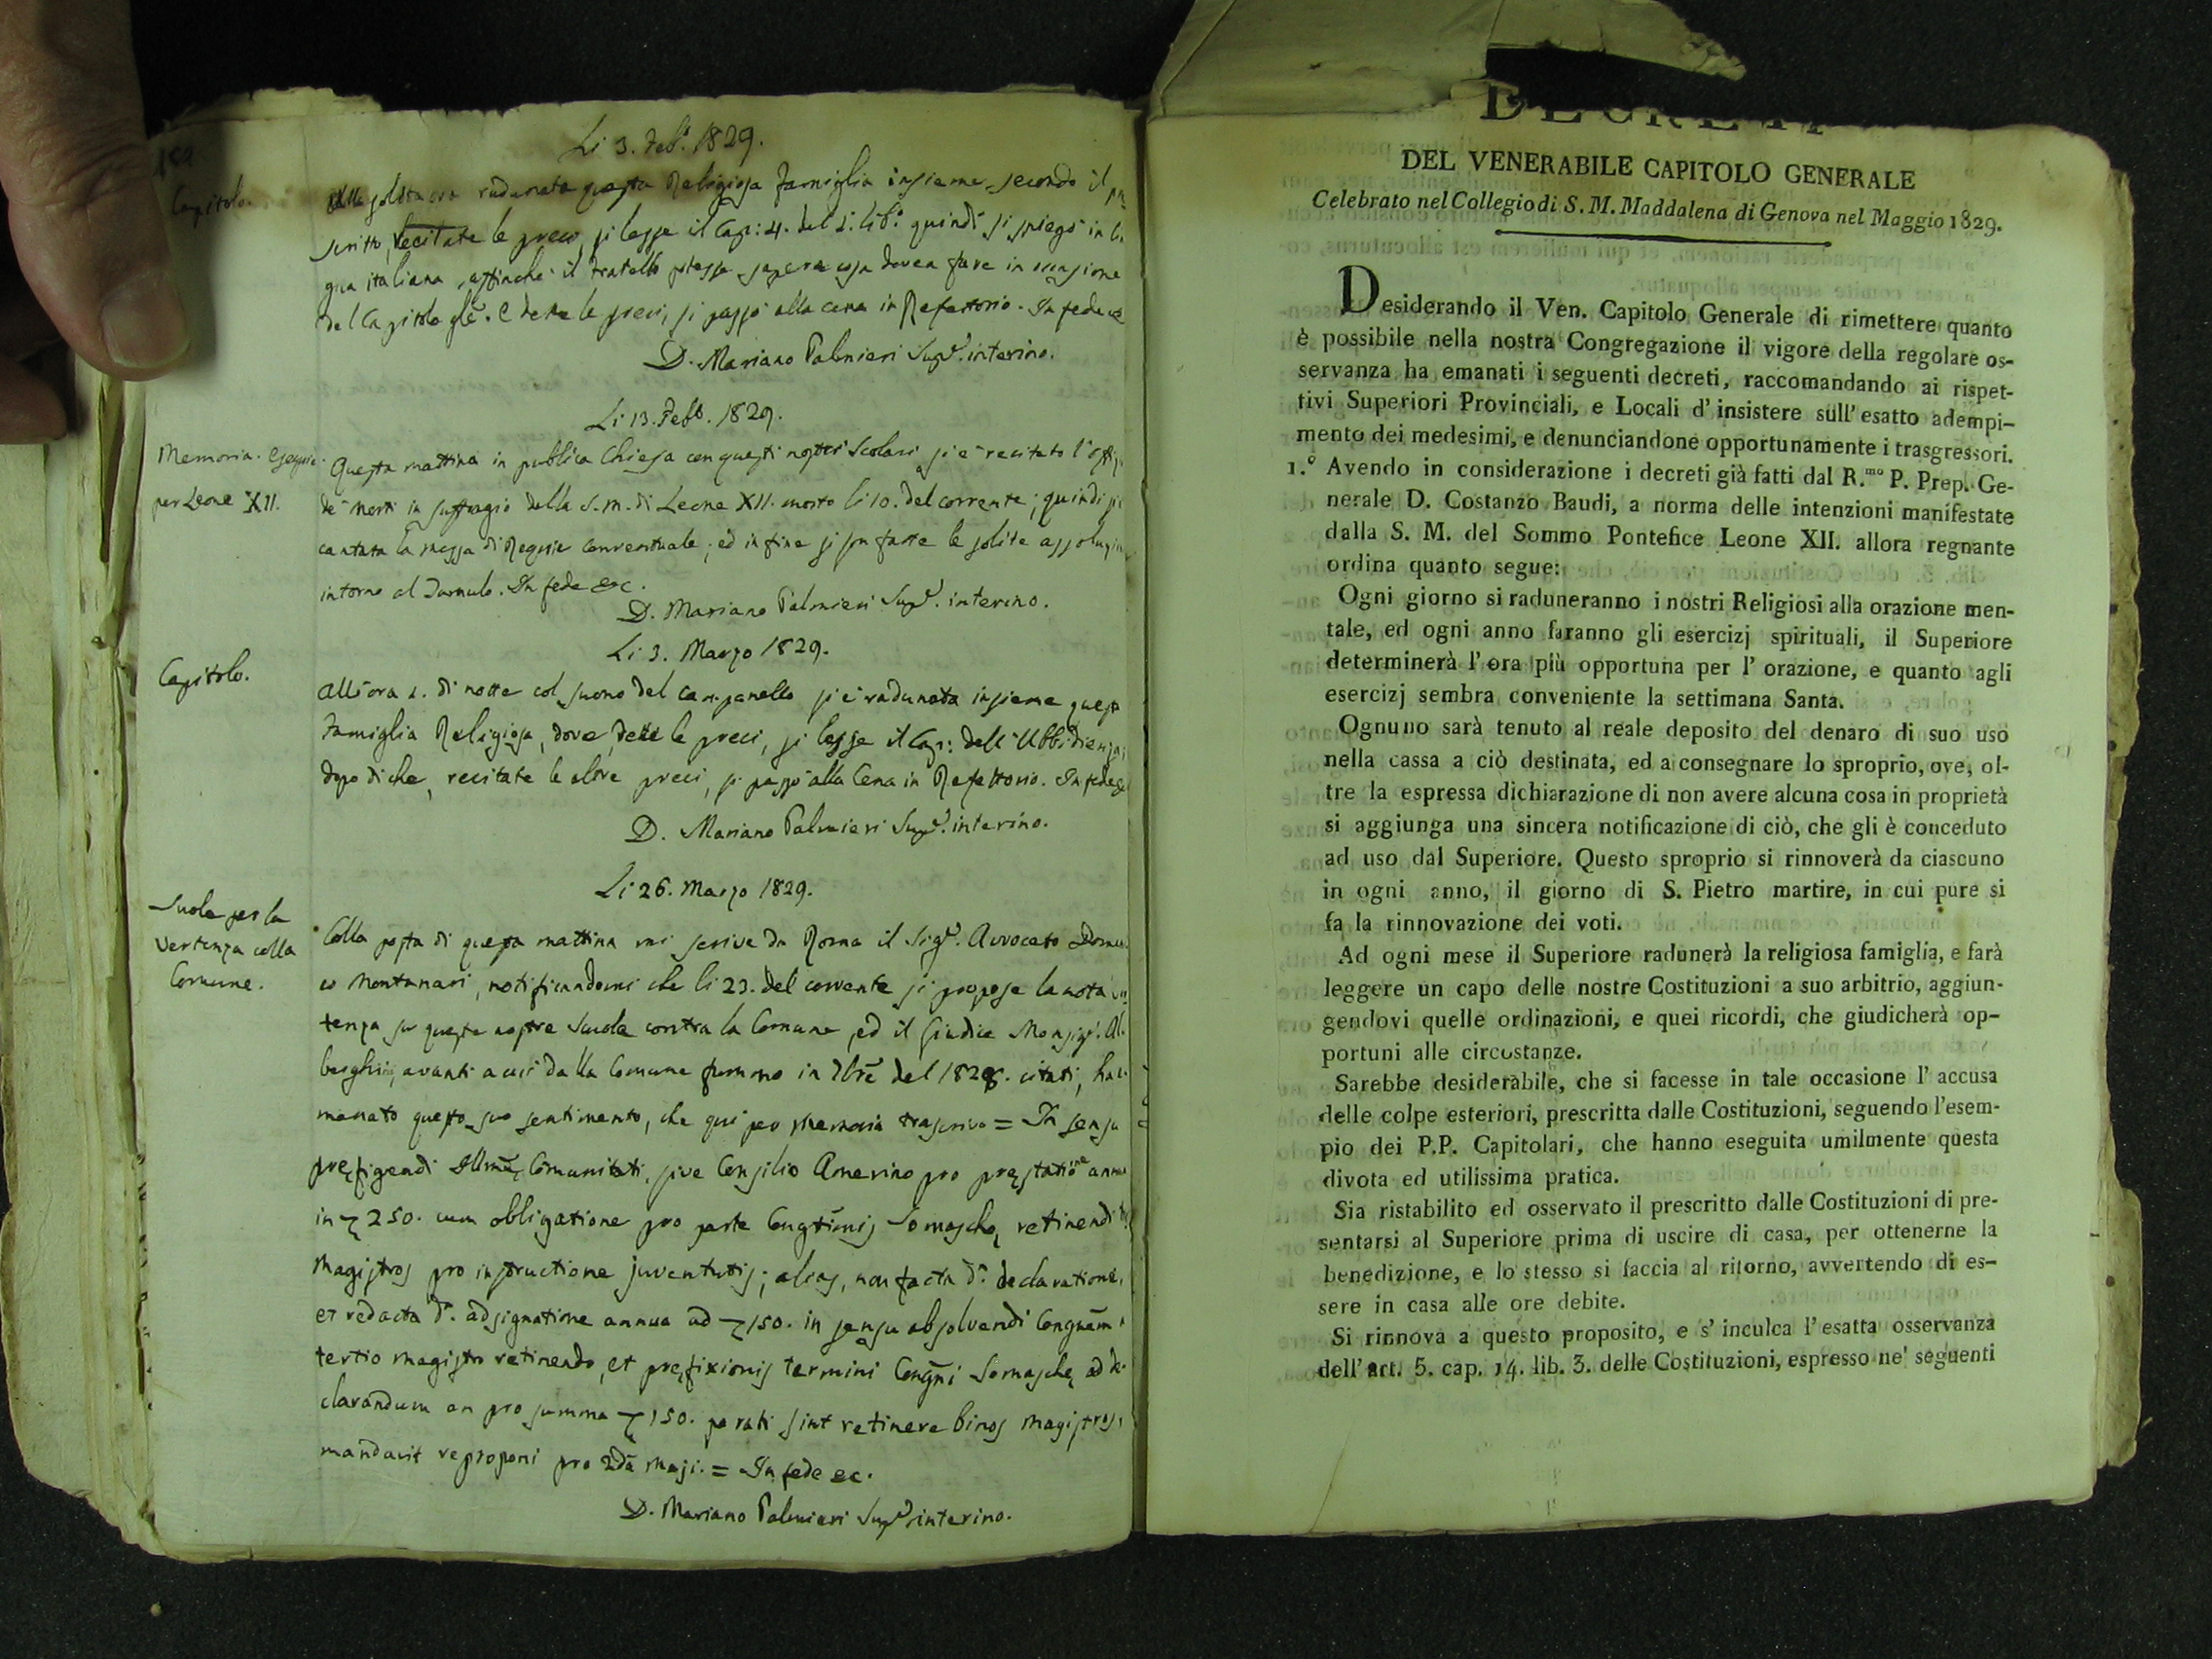 Li 3. Feb.° 1829.
Capitolo.
Alla solita ora radunata questa Religiosa famiglia insieme secondo il
scritto, recitate le preci, si lesse il Cap: 4. del 2. lib.° quindi si spiegò in
gua italiana, affinchè il fratello potesse sapere cosa dovea fare in occasione
del Capitolo gle. E dette le preci, si passò alla cena in Refettorio. In fede ec
D. Mariano Palmieri Sup.e interino.
Li 13. Febb. 1829.
Memoria. Esequie
per Leone XII.
Questa mattina in publica Chiesa con questi nostri Scolari si è recitato l'
de' morti in suffragio della S. M. di Leone XII. morto li 10. del corrente; quindi si
cantata la messa di Requie conventuale; ed in fine si son fatte le solite
intorno al Tumulo. In fede ec.
D. Mariano Palmieri Sup.e interino.
Li 3. Marzo 1829.
Capitolo.
All'ora 2. di notte col suono del campanello si è radunata insieme questa
Famiglia Religiosa, dove, dette le preci, si lesse il Cap: dell'Ubbidienza;
dopo di che, recitate le altre preci, si passò alla Cena in Refettorio. In fede
D. Mariano Palmieri Sup.e interino.
Li 26. Marzo 1829.
Scole per la
vertenza colla
Comune.
Colla posta di questa mattina mi scrive da Roma il Sig.e Avvocato
Montanari, notificandomi che li 23. del corrente si propose la nota
tenza su queste nostre Scuole contra la Comune, ed il Giudice Monsig.e Al
berghini, avanti a cui dalla Comune fummo in 7bre del 1828. citati, ha
manato questo suo sentimento, che qui per memoria trascrivo = In sensu
prefigendi Illmę Comunitati, sive Consilio Amerino pro pręstatione annua
in 250. cum obligatione pro parte Congtionis Somaschę retinendi
Magistros pro instructione juventutis; alias, non facta d.a declaratione,
et redacta d.a adsignatione annua ad 150. in sensu absolvendi Congnem
tertio magistro retinendo, et pręfixionis termini Congni Somaschę ad de
clarandum an pro summa 150. parati sint retinere binos magistros,
mandavit reproponi pro 2da Maji. = In fede ec.
D. Mariano Palmieri Sup.e interino.
DECRETI
DEL VENERABILE CAPITOLO GENERALE
Celebrato nel Collegio di S. M. Maddalena di Genova nel Maggio 1829.
Desiderando il Ven. Capitolo Generale di rimettere quanto
è possibile nella nostra Congregazione il vigore della regolare os-
servanza ha emanati i seguenti decreti, raccomandando ai rispet-
tivi Superiori Provinciali, e Locali d' insistere sull' esatto adempi-
mento dei medesimi, e denunciandone opportunamente i trasgressori.
1.° Avendo in considerazione i decreti già fatti dal R.mo P. Prep. Ge-
nerale D. Costanzo Baudi, a norma delle intenzioni manifestate
dalla S. M. del Sommo Pontefice Leone XII. allora regnante
ordina quanto segue:
Ogni giorno si raduneranno i nostri Religiosi alla orazione men-
tale, ed ogni anno faranno gli esercizj spirituali, il Superiore
determinerà l' ora più opportuna per l' orazione, e quanto agli
esercizj sembra conveniente la settimana Santa.
Ognuno sarà tenuto al reale deposito del denaro di suo uso
nella cassa a ciò destinata, ed a consegnare lo sproprio, ove, ol-
tre la espressa dichiarazione di non avere alcuna cosa in proprietà
si aggiunga una sincera notificazione di ciò, che gli è conceduto
ad uso dal Superiore. Questo sproprio si rinnoverà da ciascuno
in ogni anno, il giorno di S. Pietro martire, in cui pure si
fa la rinnovazione dei voti.
Ad ogni mese il Superiore radunerà la religiosa famiglia, e farà
leggere un capo delle nostre Costituzioni a suo arbitrio, aggiun-
gendovi quelle ordinazioni, e quei ricordi, che giudicherà op-
portuni alle circostanze.
Sarebbe desiderabile, che si facesse in tale occasione l' accusa
delle colpe esteriori, prescritta dalle Costituzioni, seguendo l'esem-
pio dei P.P. Capitolari, che hanno eseguita umilmente questa
divota ed utilissima pratica.
Sia ristabilito ed osservato il prescritto dalle Costituzioni di pre-
sentarsi al Superiore prima di uscire di casa, per ottenerne la
benedizione, e lo stesso si faccia al ritorno, avvertendo di es-
sere in casa alle ore debite.
Si rinnova a questo proposito, e s' inculca l' esatta osservanza
dell' art. 5. cap. 14. lib. 3. delle Costituzioni, espresso ne' seguenti